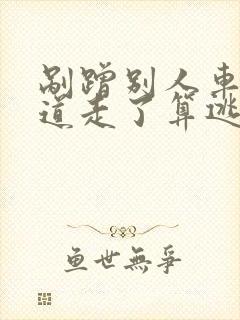 剐蹭别人車
道走了算逃
鱼世無爭